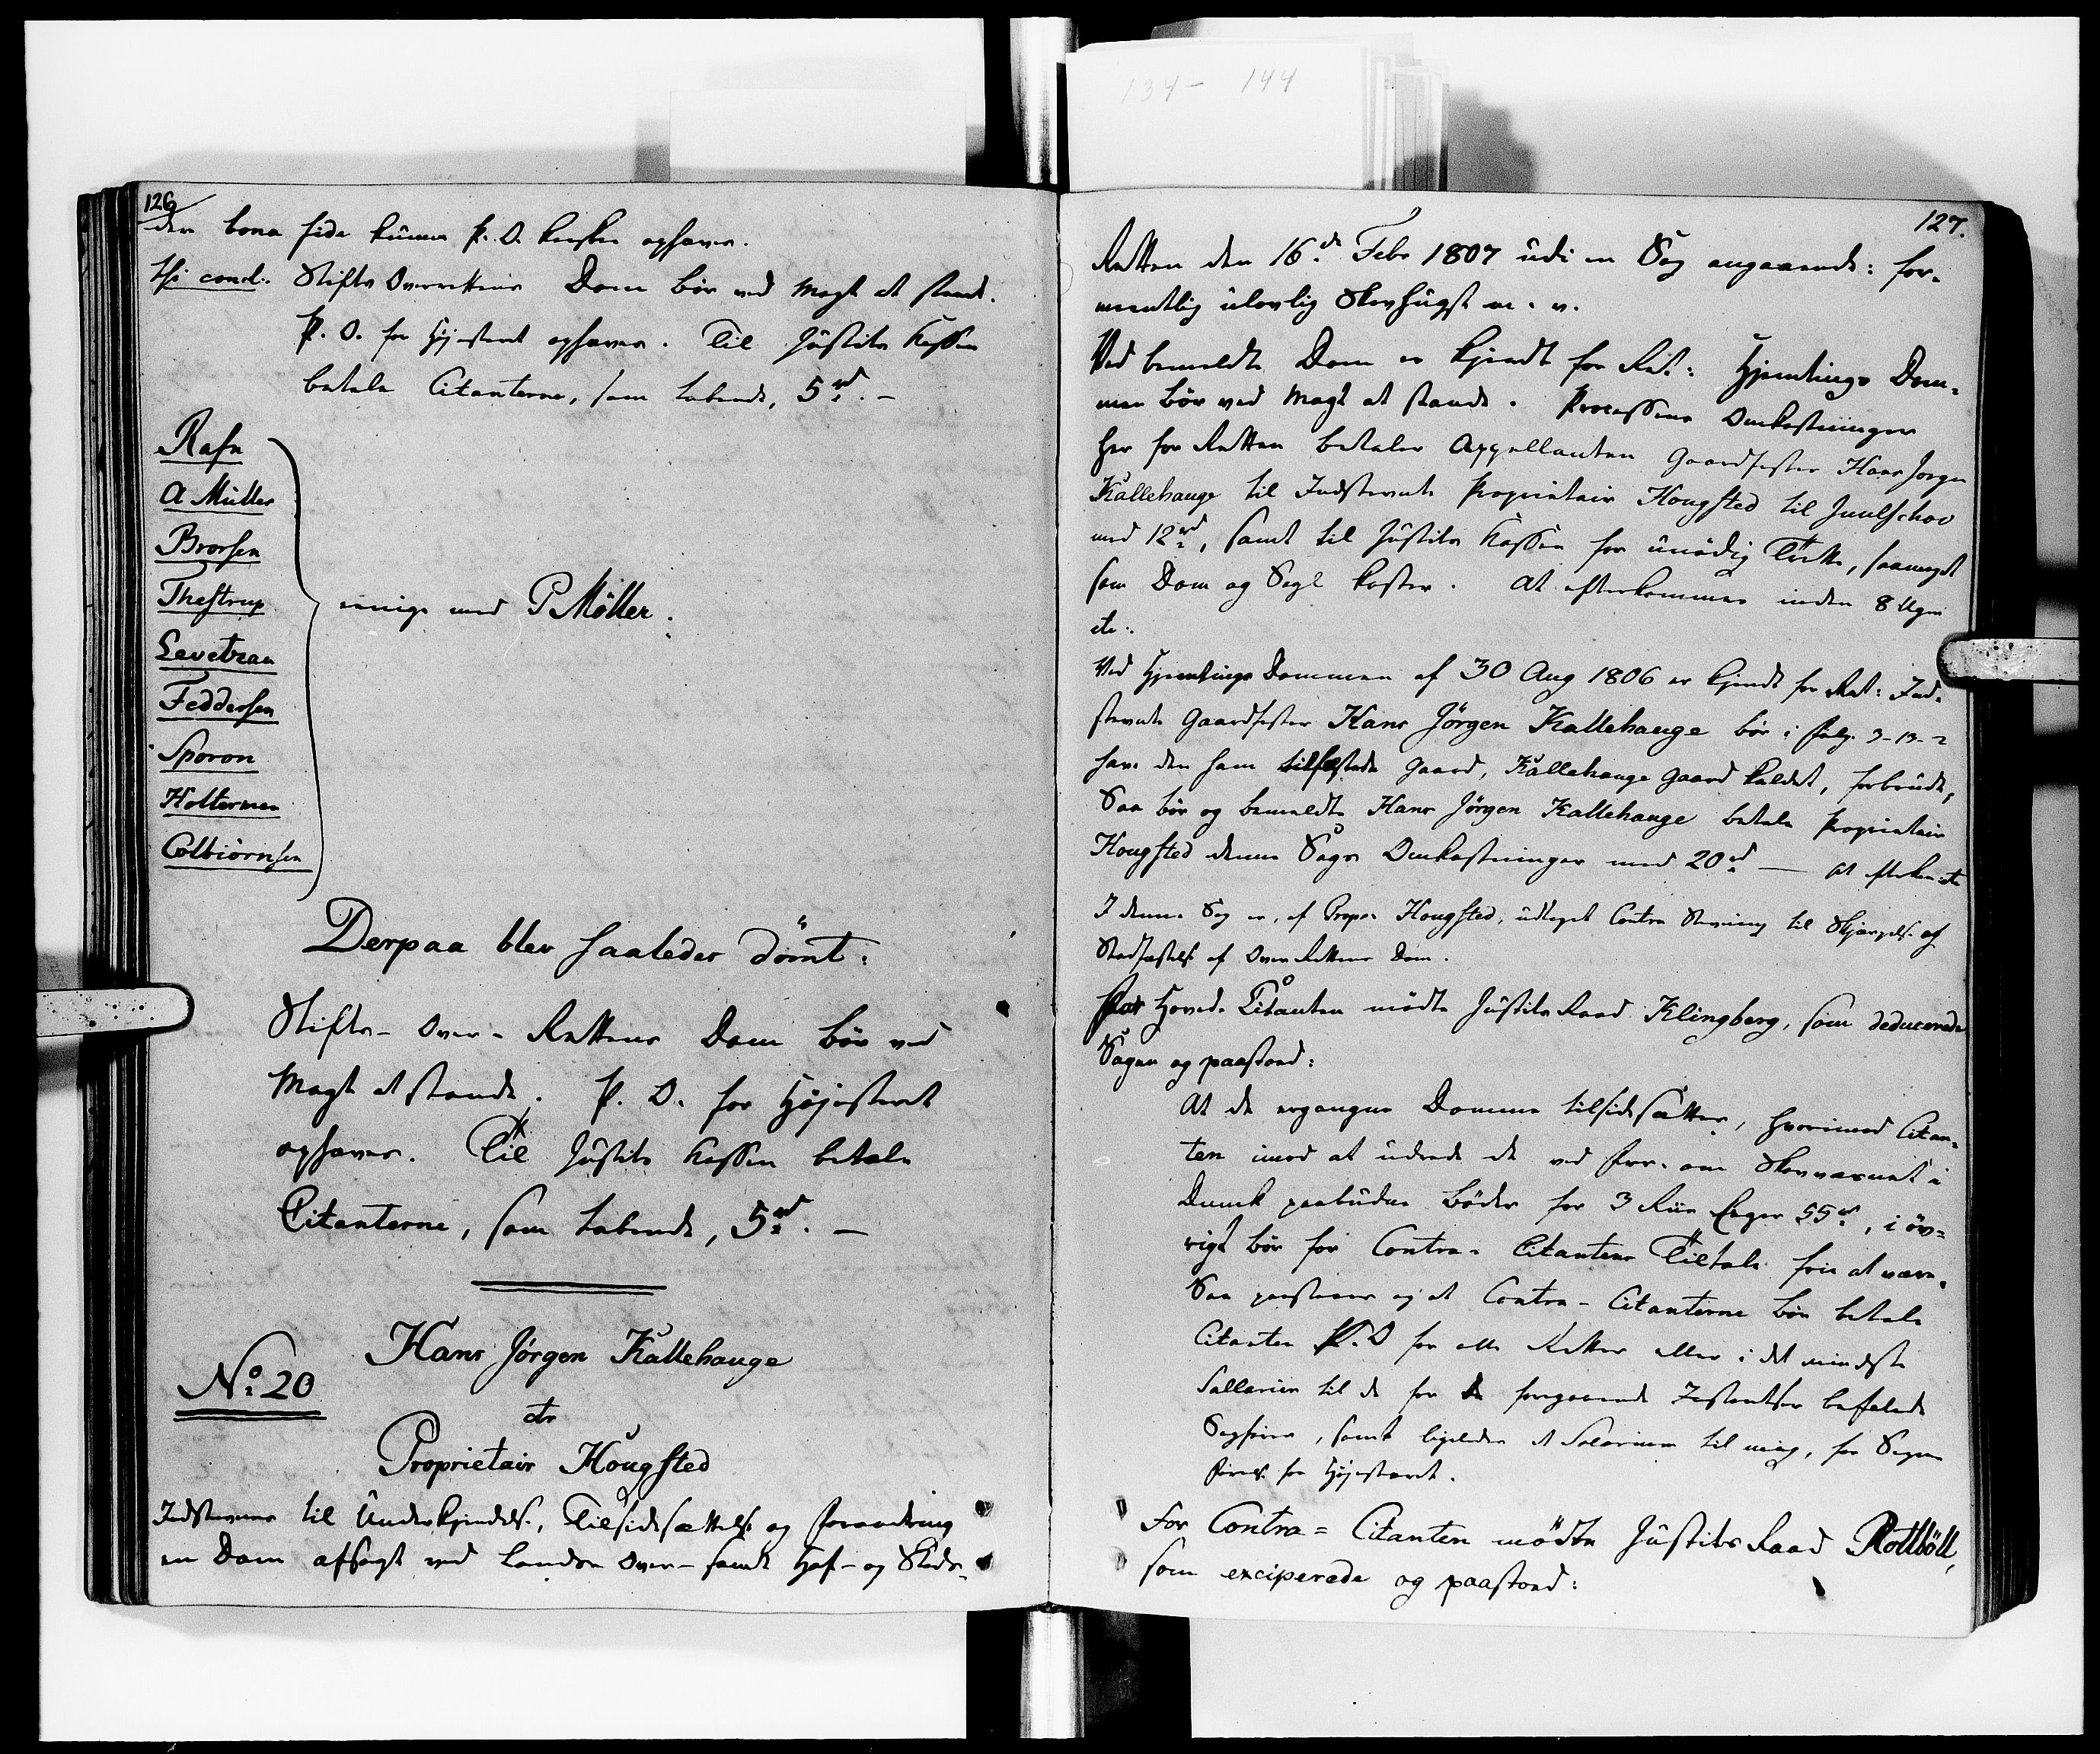 134 - 144
126
den bona fide kunne P. O. kuske ophæves.
Thi concl: Stifts Overrettens Dom bör ved Magt at stande.
P. O. for Høiesteret ophæves. Til Justits Kassen
betale Citanterne, som tabende, 5 rd. -
Rafn
A Müller
Brorsen
Thestrup
Levetzau
Feddersen
Sporon
Holterman
Colbiörnsen
enige med P Möller.
Derpaa blev saaledes dömt:
Stifts- Over- Rettens Dom bör ved
Magt at stande. P. O. for Höjesteret
ophæves. Til Justits Kassen betale
Citanterne, som tabende, 5 rd. -
No 20
Hans Jörgen Kallehauge
ctr
Proprietair Hougsted
Indstevner til Underkjendelse, Tilsidesættelse og Forandring
en Dom afsagt ved Landsover- samt Hof- og Stads-
127.
Retten den 16de Febr 1807 udi en Sag angaaende: for-
mentlig ulovlig Skovhugst m. v.
Ved bemeldte Dom er kjendt for Ret: Hjemtings Dom-
men bör ved Magt at stande. Processens Omkostninger
her for Retten betaler Appellanten Gaardfæster Hans Jörgen
Kallehauge til Indstevnte Proprietair Hougsted til Juulschov
med 12 rd, samt til Justits Kassen for unödig Trette, saameget
som Dom og Segl koster. At efterkommes inden 8 Uger
etc.
Ved Hjemtings Dommen af 30 Aug 1806 er kjendt for Ret: Ind-
stevnte Gaardfæster Hans Jörgen Kallehauge bör i fölge 3-13-2
have den ham tilfæstede Gaard, Kallehauge Gaard kaldet, forbrudt,
Saa bör og bemeldte Hans Jörgen Kallehauge betale Proprietair
Hougsted denne Sags Omkostninger med 20 rd - At efterkom: etc
I denne Sag er, af Propr. Hougsted, udtaget Contra Stevning til Skjærpelse af
Stadfæstelse af Over Rettens Dom.
For Hoved- Citanten mödte Justits Raad Klingberg, som deducerede
Sagen og paastod:
At de ergangne Domme tilsidesættes, hvorimod Citan-
ten imod at udrede de ved Forr. om Skovvæsenet i
Danmk paabudne Böder for 3 Riis Eeger 55 rd, i öv-
rigt bör for Contra- Citantens Tiltale frie at være.
Saa paastaaes og at Contra- Citanterne bör betale
Citanten P. O for alle Retter eller i det mindste
Sallarier til de for de foregaaende Instantser befalede
Sagförer, samt ligeledes et Salarium til mig, for Sagens
Förelse for Höjesteret.
For Contra= Citanten mödte Justits Raad Rottböll,
som exciperede og paastod: